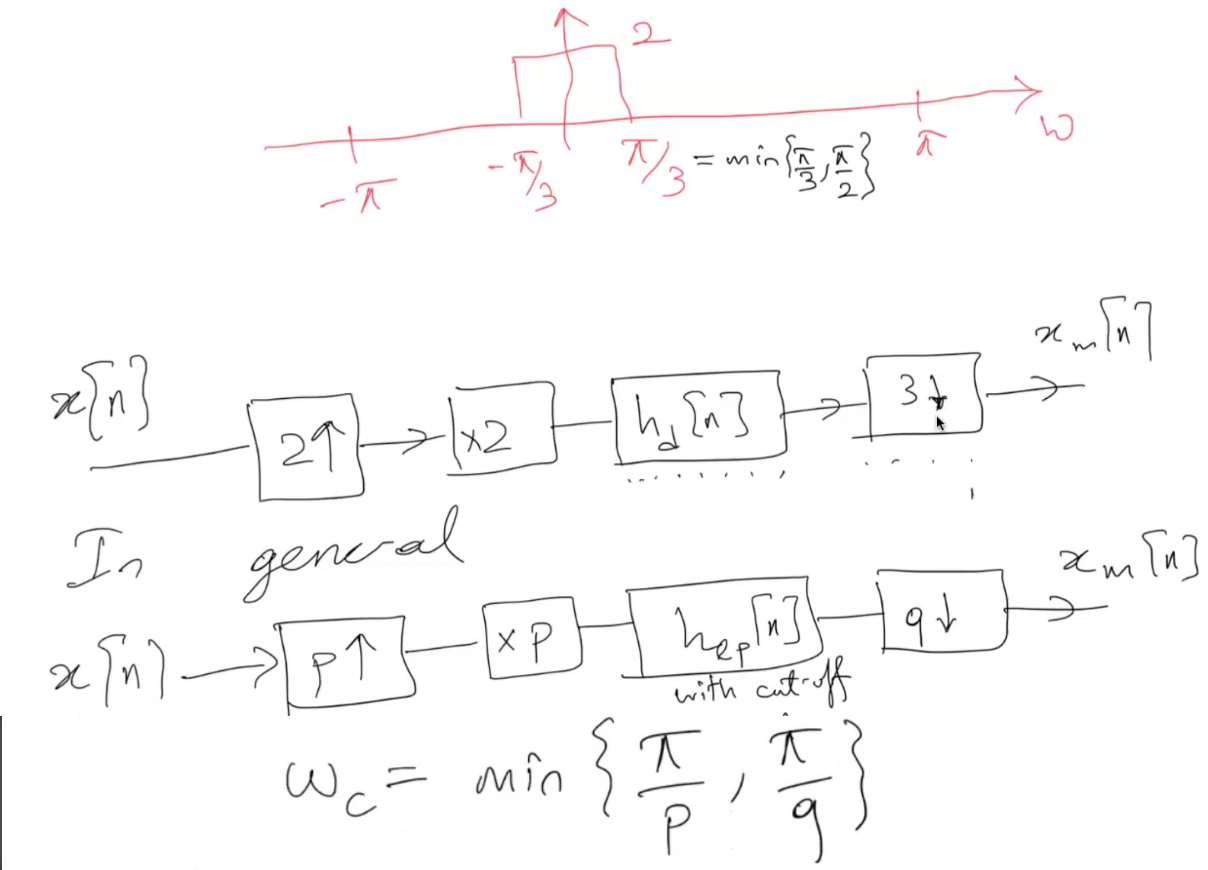 2
-π -π/3 π/3 = min{π/3, π/2} π ω
x[n] 2↑ x2 h_d[n] 3↓ x_m[n]
In general
x[n] p↑ x p h_lp[n] q↓ x_m[n]
with cut-off
ω_c = min {π/p, π/q}